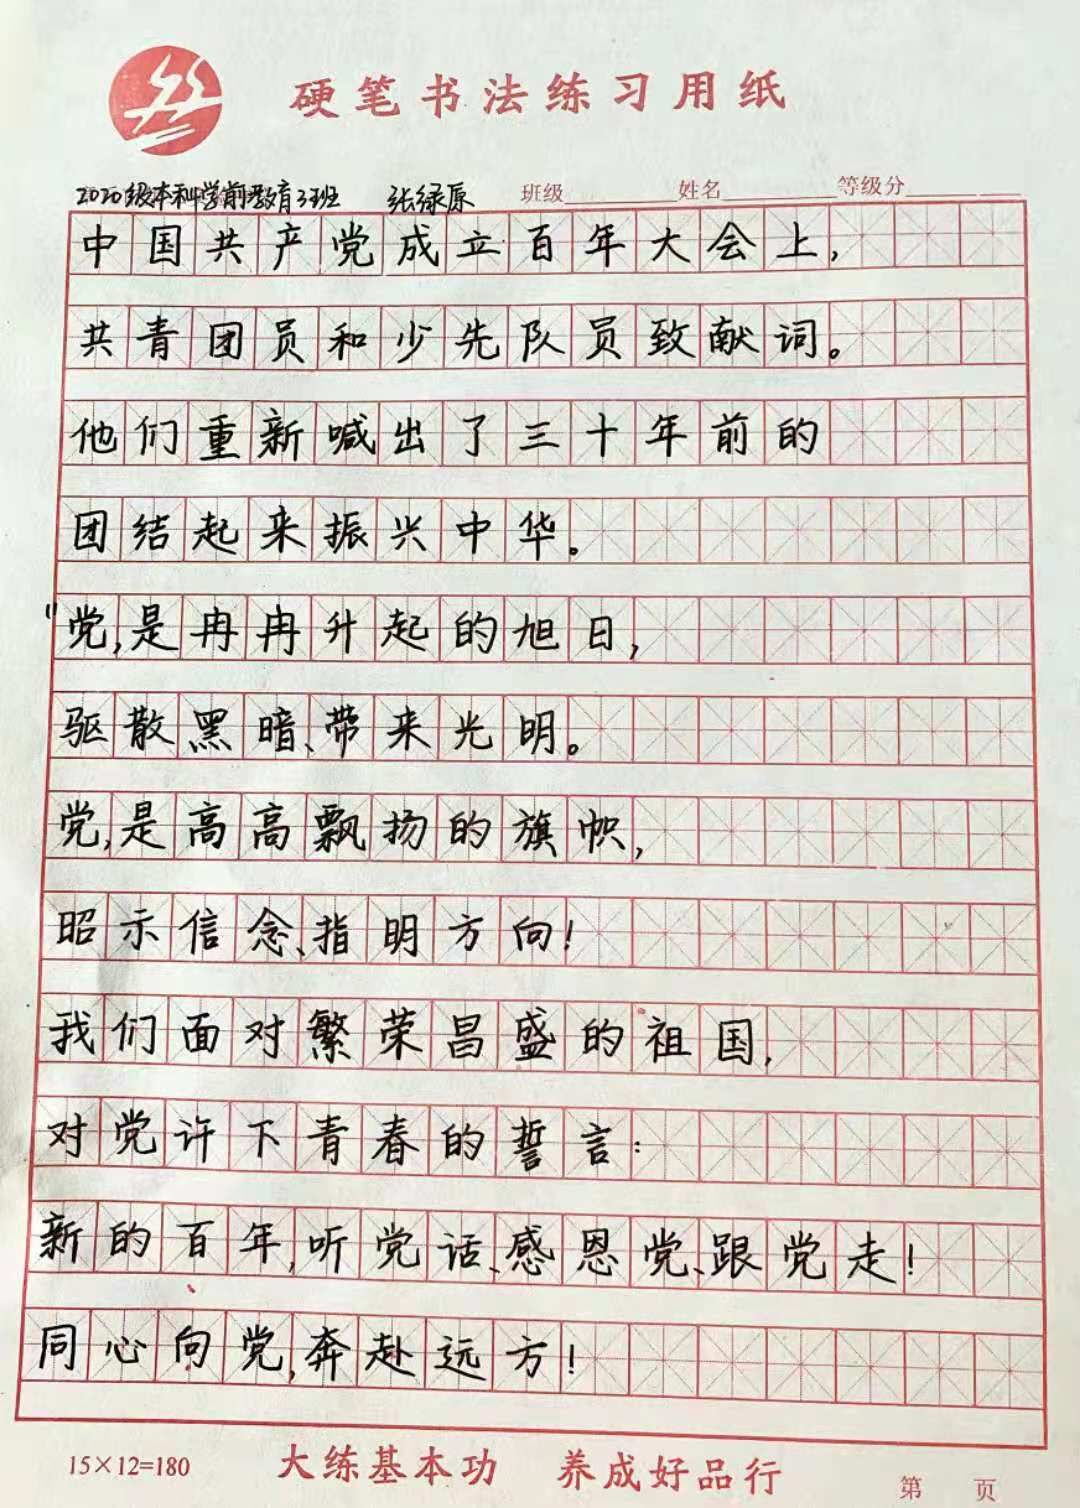 硬笔书法练习用纸
2020级本科学前教育3班 张绿原 班级 姓名 等级分
中国共产党成立百年大会上,
共青团员和少先队员致献词。
他们重新喊出了三十年前的
团结起来振兴中华。
"党,是冉冉升起的旭日,
驱散黑暗、带来光明。
党,是高高飘扬的旗帜,
昭示信念、指明方向!
我们面对繁荣昌盛的祖国,
对党许下青春的誓言:
新的百年,听党话、感恩党、跟党走!
同心向党,奔赴远方!
15×12=180 大练基本功 养成好品行 第 页